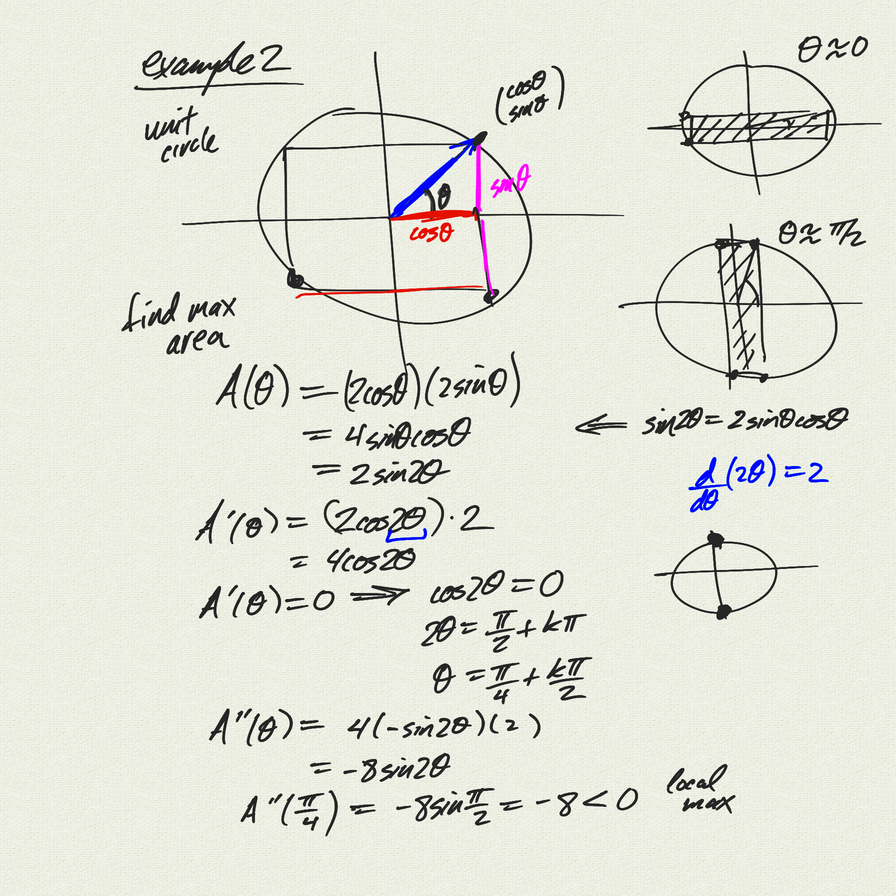 example 2
unit
circle
(cosθ
sinθ)
θ
sinθ
cosθ
θ≈0
θ≈π/2
find max
area
A(θ) = (2cosθ)(2sinθ)
= 4sinθcosθ
⇐ sin2θ = 2sinθcosθ
= 2sin2θ
d/dθ (2θ) = 2
A'(θ) = (2cos2θ)·2
= 4cos2θ
A'(θ) = 0 ⇒ cos2θ = 0
2θ = π/2 + kπ
θ = π/4 + kπ/2
A''(θ) = 4(-sin2θ)(2)
= -8sin2θ
A''(π/4) = -8sin π/2 = -8 < 0
local
max